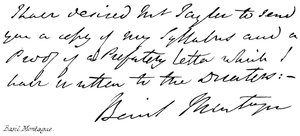 I have desired Mr Taylor to send
you a copy of my Syllabus and a
Proof of a Prefatory Letter which I
have written to the Directors:—
Basil Montagu
Basil Montague.